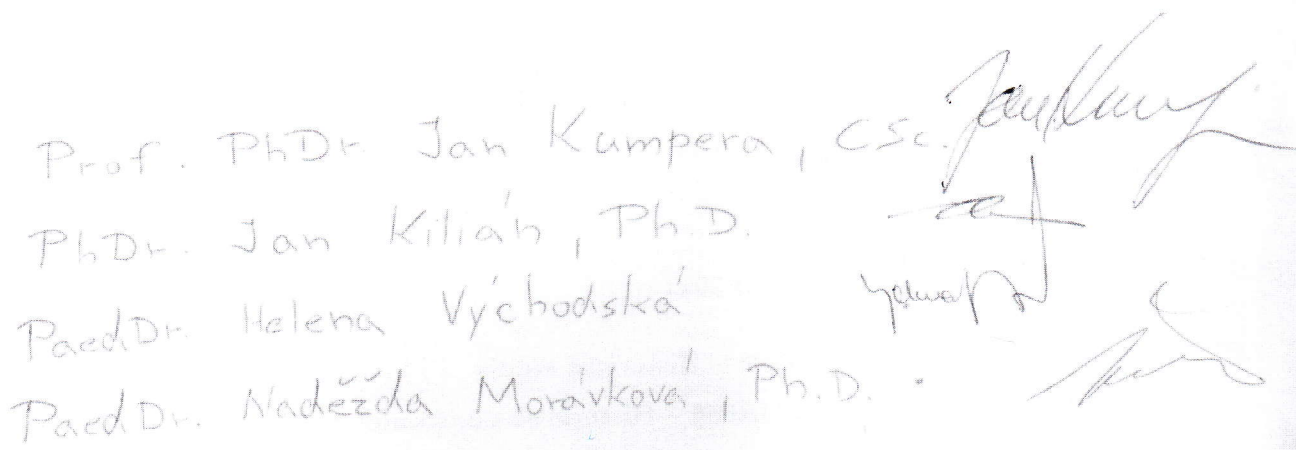 Prof. PhDr. Jan Kumpera, CSc.
PhDr. Jan Kilián, Ph.D.
PaedDr. Helena Východská
PaedDr. Naděžda Morávková, Ph.D.